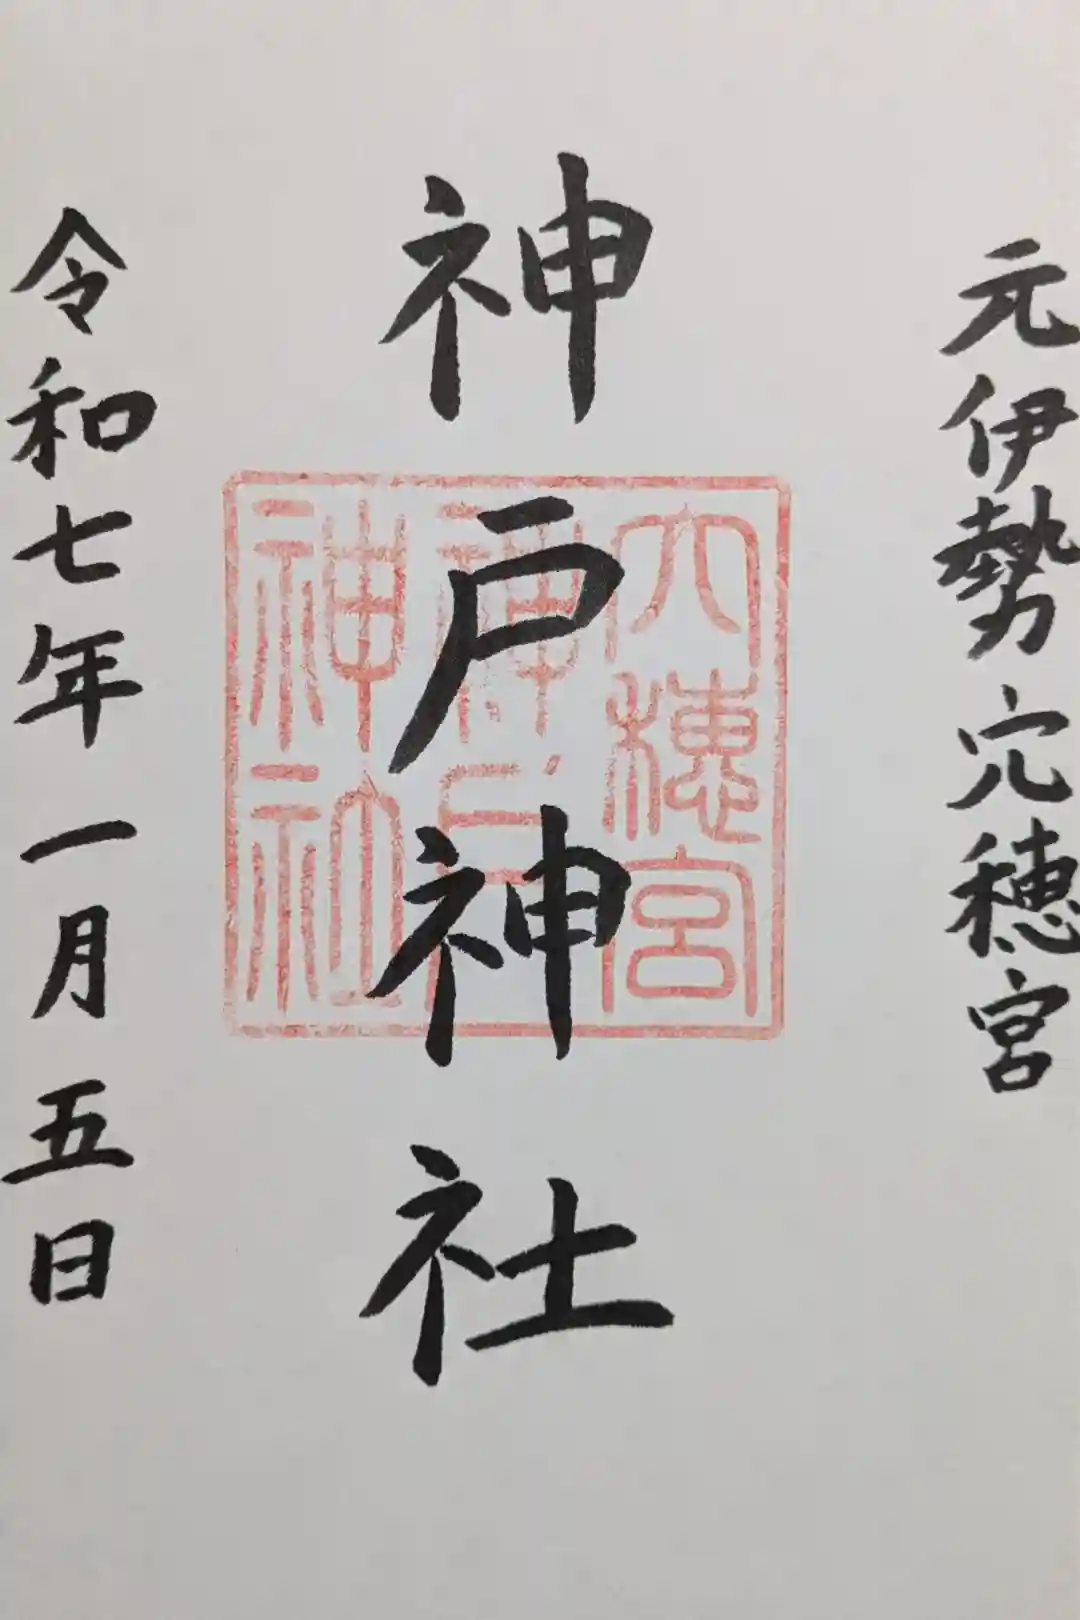 元伊勢穴穂宮
神戸神社
令和七年一月五日
穴穂宮
神戸
神社